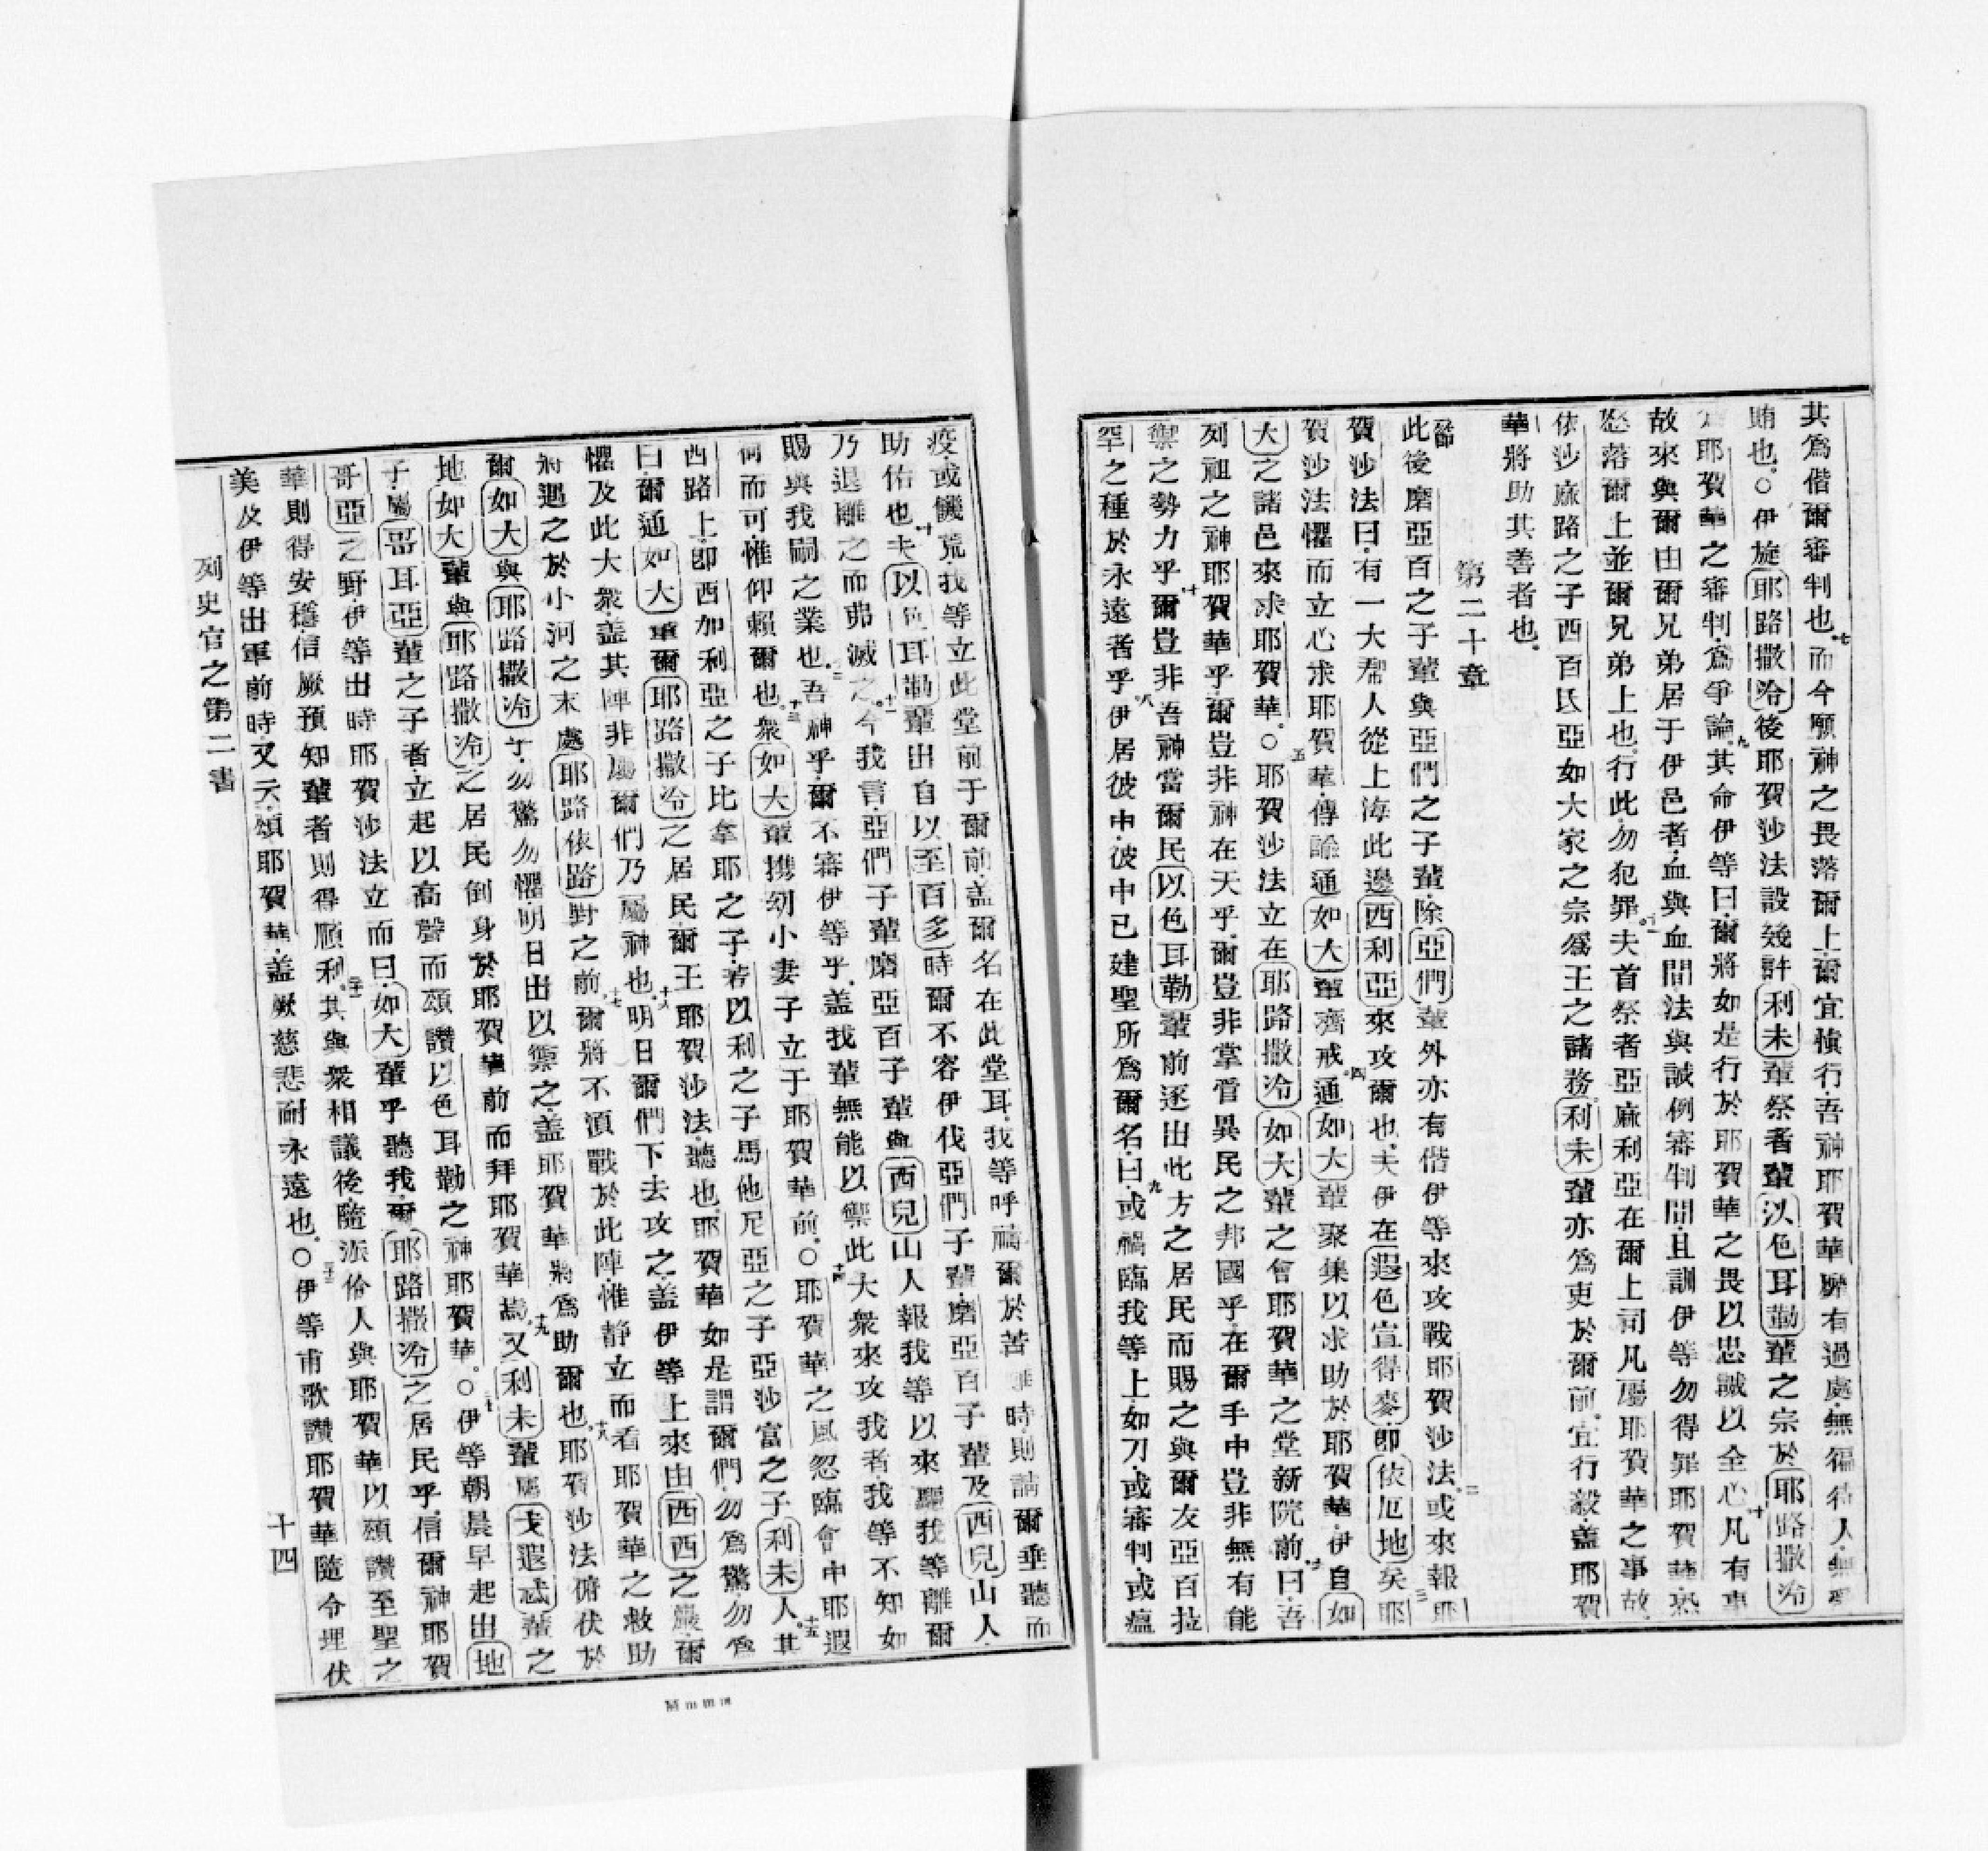 其爲偕爾審判也七而今願神之畏落爾上爾宜愼行吾神耶賀華厥有過處無徧待人無受
賄也○伊旋耶路撒冷後耶賀沙法設幾許利未輩祭者輩以色耳勒輩之宗於耶路撒冷
耶賀華之審判爲爭論九其命伊等曰爾將如是行於耶賀華之畏以忠誠以全心十凡有事
故來與爾由爾兄弟居于伊邑者血與血間法與誡例審判間且訓伊等勿得罪耶賀華恐
怒落爾上並爾兄弟上也行此勿犯罪十一夫首祭者亞麻利亞在爾上司凡屬耶賀華之事故
依沙麻路之子西百氐亞如大家之宗爲王之諸務利未輩亦爲吏於爾前宜行毅盖耶賀
華將助其善者也
第二十章
一節此後磨亞百之子輩與亞們之子輩除亞們輩外亦有偕伊等來攻戰耶賀沙法二或來報耶
賀沙法曰有一大帮人從上海此邊西利亞來攻爾也夫伊在遐色宣得麥即依厄地矣三耶
賀沙法懼而立心求耶賀華傳諭通如大輩齋戒四通如大輩聚集以求助於耶賀華伊自如
大之諸邑來求耶賀華○五耶賀沙法立在耶路撒冷如大輩之會耶賀華之堂新院前六曰吾
列祖之神耶賀華乎爾豈非神在天乎爾豈非掌管異民之邦國乎在爾手中豈非無有能
禦之勢力乎七爾豈非吾神當爾民以色耳勒輩前逐出此方之居民而賜之與爾友亞百拉
罕之種於永遠者乎八伊居彼中彼中已建聖所爲爾名曰九或禍臨我等上如刀或審判或瘟
疫或饑荒我等立此堂前于爾前盖爾名在此堂耳我等呼禱爾於苦難時則請爾垂聽而
助佑也十夫以色耳勒輩出自以至百多時爾不容伊伐亞們子輩磨亞百子輩及西兒山人
乃退離之而弗滅之十一今我言亞們子輩磨亞百子輩與西兒山人報我等以來驅我等離爾
賜與我嗣之業也十二吾神乎爾不審伊等乎盖我輩無能以禦此大衆來攻我者我等不知如
何而可惟仰賴爾也十三衆如大輩携幼小妻子立于耶賀華前○十四耶賀華之風忽臨會中耶遐
西路上即西加利亞之子比拿耶之子若以利之子馬他尼亞之子亞沙富之子利未人十五其
曰爾通如大輩爾耶路撒冷之居民爾王耶賀沙法聽也耶賀華如是謂爾們勿爲驚勿爲
懼及此大衆盖其陣非屬爾們乃屬神也十六明日爾們下去攻之盖伊等上來由西西之巖爾
將遇之於小河之末處耶路依路對之前十七爾將不須戰於此陣惟静立而看耶賀華之救助
爾如大與耶路撒冷乎勿驚勿懼明日出以禦之盖耶賀華將爲助爾也十八耶賀沙法俯伏於
地如大輩與耶路撒冷之居民倒身於耶賀華前而拜耶賀華焉十九又利未輩屬戈遐忒輩之
子屬哥耳亞輩之子者立起以高聲而頌讚以色耳勒之神耶賀華○二十伊等朝晨早起出地
哥亞之野伊等出時耶賀沙法立而曰如大輩乎聽我爾耶路撒冷之居民乎信爾神耶賀
華則得安穩信厥預知輩者則得順利二十一其與衆相議後隨派伶人與耶賀華以頌讚至聖之
美及伊等出軍前時又云頌耶賀華盖厥慈悲耐永遠也○二十二伊等甫歌讚耶賀華隨令埋伏
列史官之第二書
十四